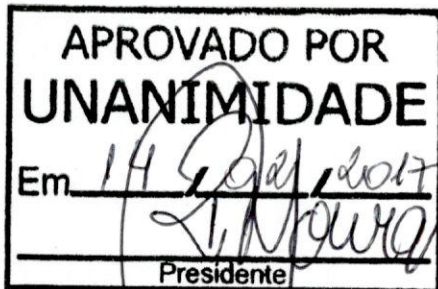 APROVADO POR
UNANIMIDADE
Em 14, 02, 2017
Presidente